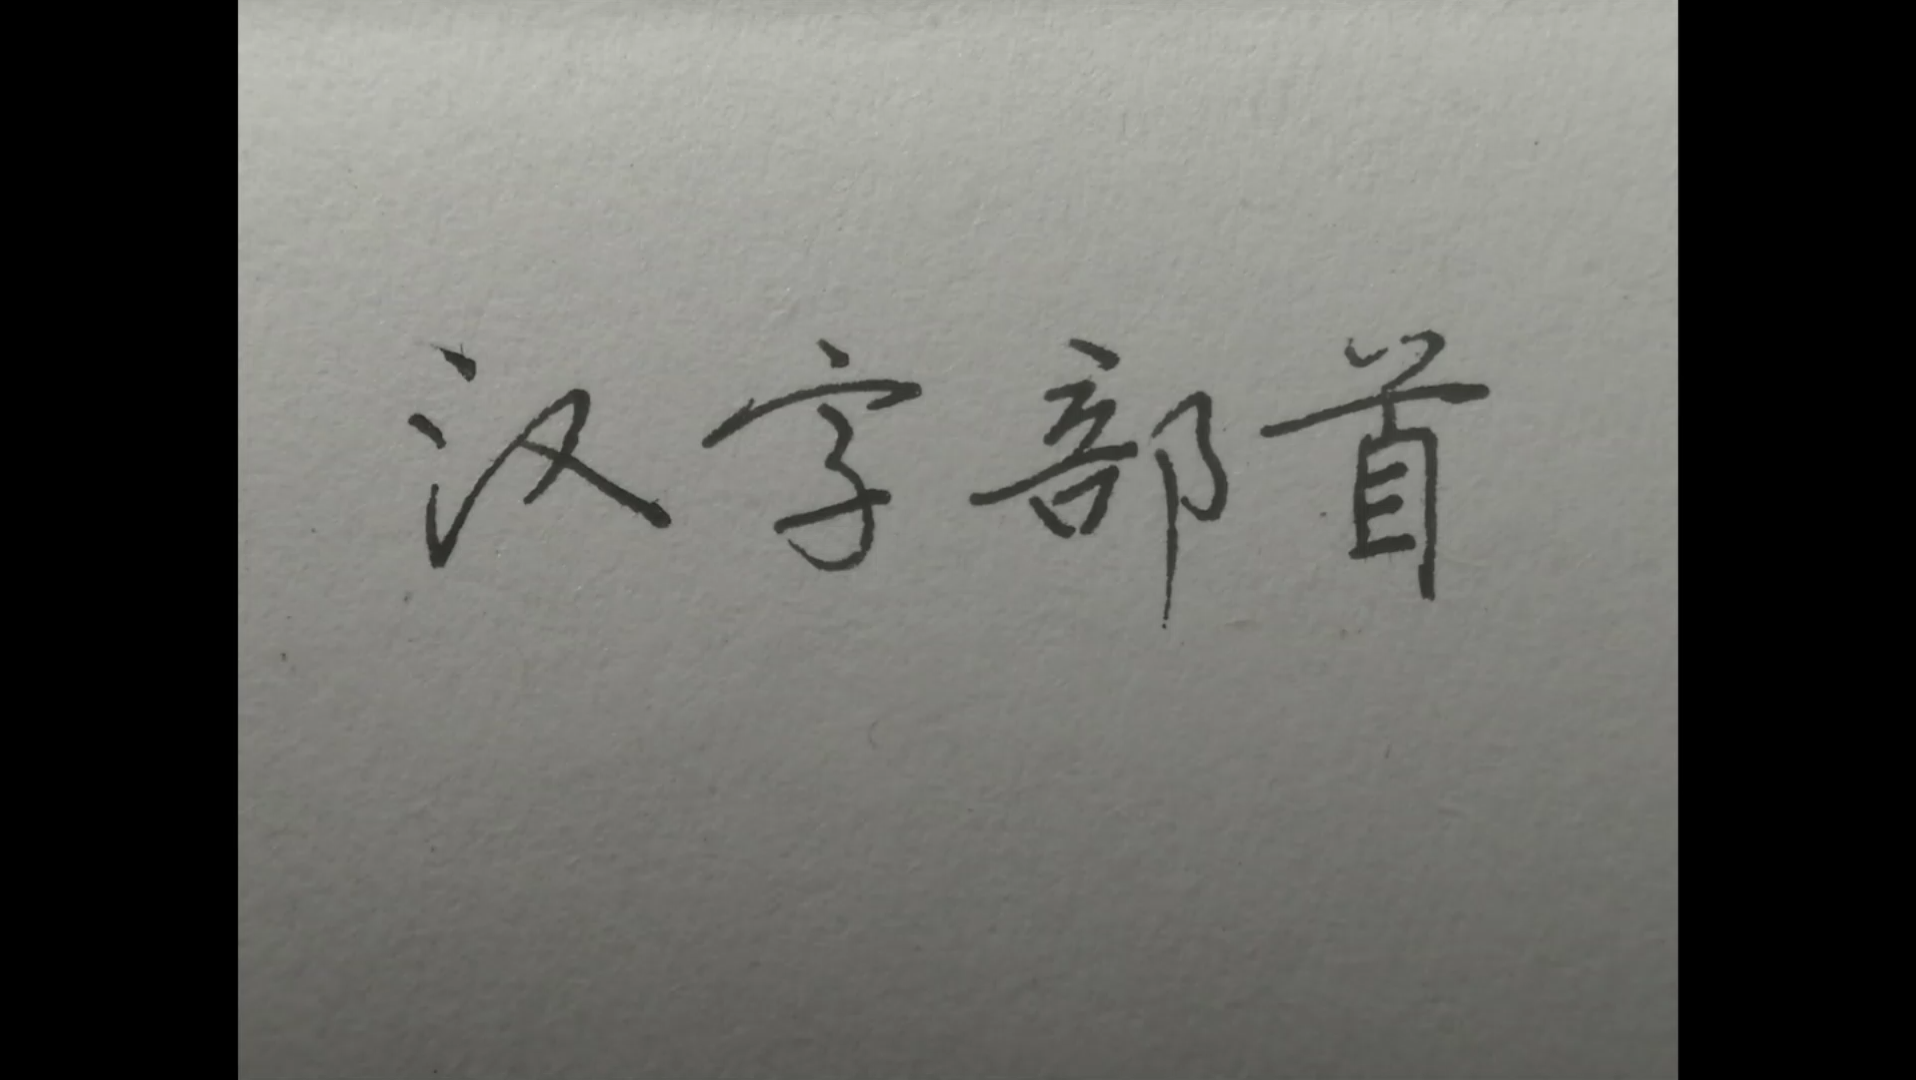 汉字部首